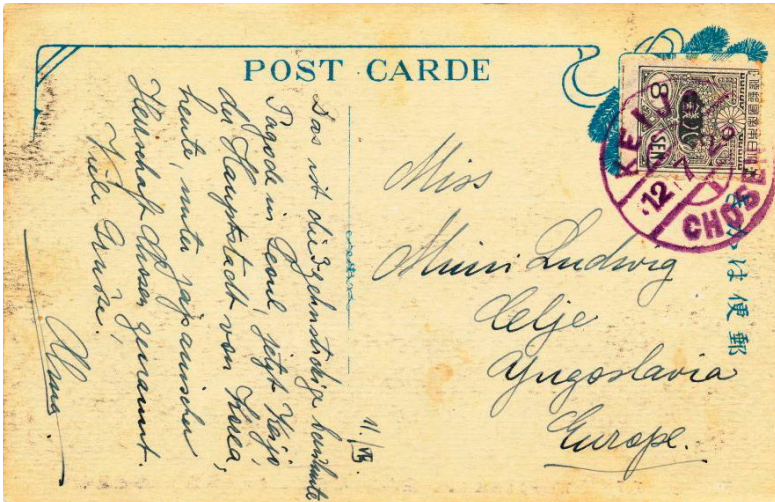 POST CARDE
Das ist die 13zehnstöckige berühmte
Pagode in Seoul, jetzt Keijo,
die Hauptstadt von Korea,
heute, unter japanischer
Herrschaft Chosen genannt.
Viele Grüsse!
Alma.
11./VII
Miss
Mimi Ludwig
Celje
Yugoslavia
Europe.
郵便はかき
8
SEN
KEIJO
12 7
CHOSEN